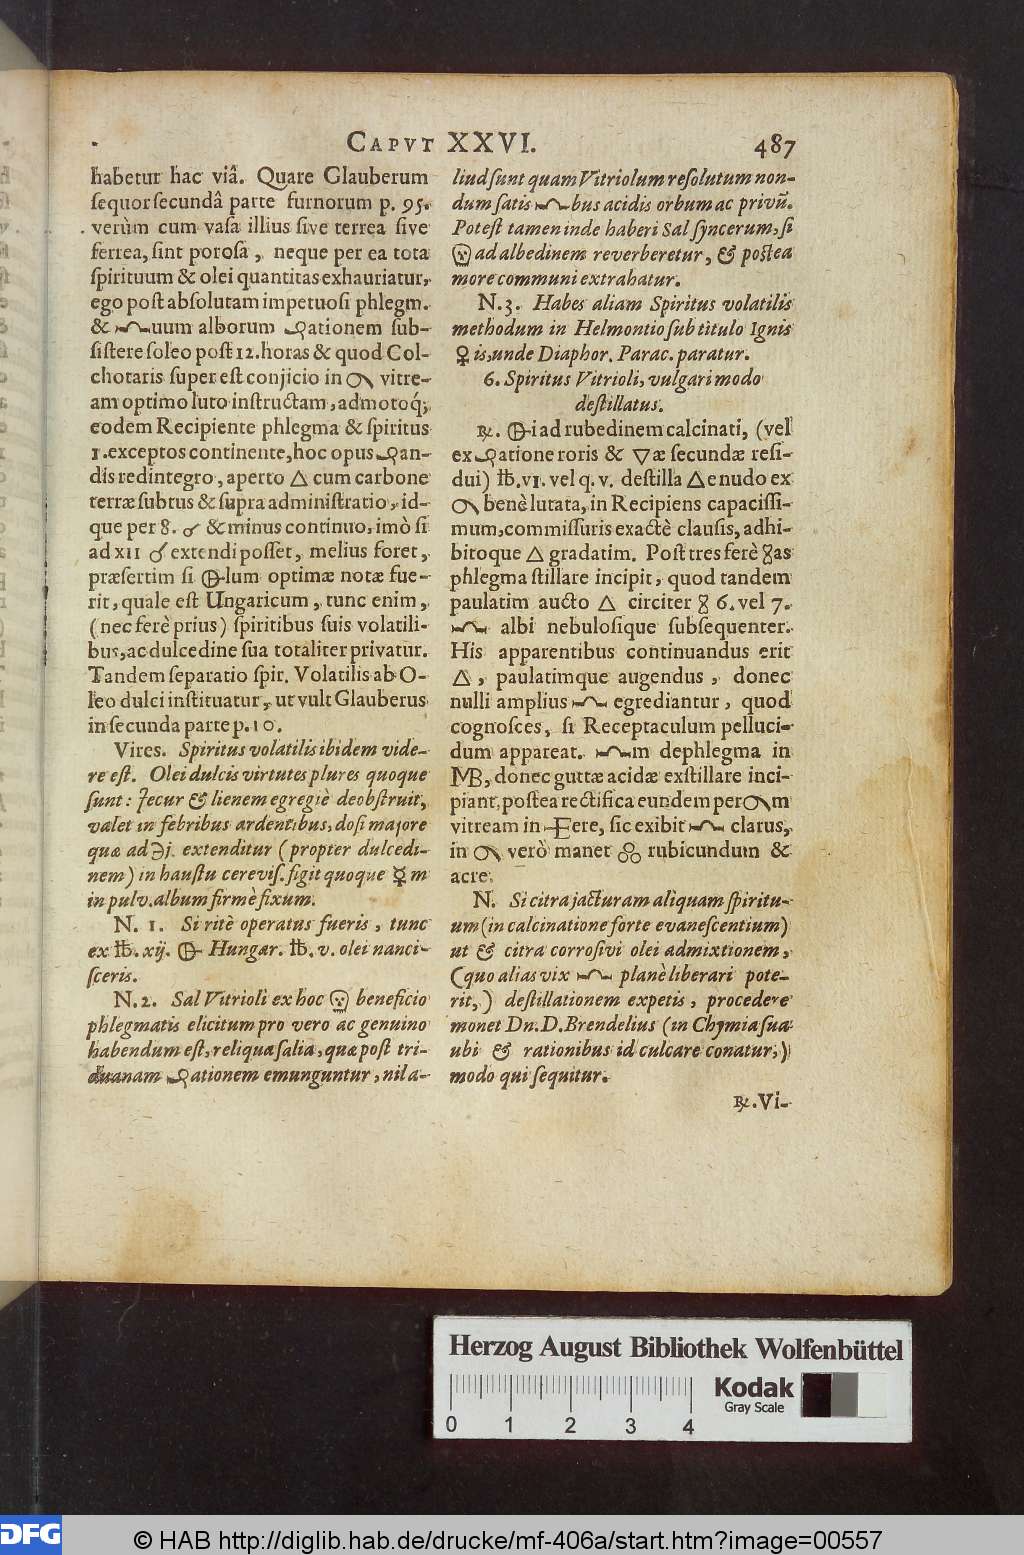 CAPVT XXVI. 487
habetur hac viâ. Quare Glauberum
ſequor ſecundâ parte furnorum p. 95.
verùm cum vaſa illius ſive terrea ſive
ferrea, ſint poroſa, neque per ea tota
ſpirituum & olei quantitas exhauriatur,
ego poſt abſolutam impetuoſi phlegm.
& uum alborum ationem ſub-
ſiſtere ſoleo poſt 12. horas & quod Col-
chotaris ſuper eſt conjicio in vitre-
am optimo luto inſtructam, admotoq́;
eodem Recipiente phlegma & ſpiritus
1. exceptos continente, hoc opus an-
dis redintegro, aperto △ cum carbone
terræ ſubtus & ſupra adminiſtratio, id-
que per 8. & minus continuo, imò ſi
ad XII extendi poſſet, melius foret,
præſertim ſi lum optimæ notæ fue-
rit, quale eſt Ungaricum, tunc enim,
(nec ferè prius) ſpiritibus ſuis volatili-
bus, ac dulcedine ſua totaliter privatur.
Tandem ſeparatio ſpir. Volatilis ab O-
leo dulci inſtituatur, ut vult Glauberus
in ſecunda parte p. 10.
Vires. Spiritus volatilis ibidem vide-
re eſt. Olei dulcis virtutes plures quoque
ſunt: Jecur & lienem egregiè deobſtruit,
valet in febribus ardentibus, doſi majore
quæ ad ℈j. extenditur (propter dulcedi-
nem) in hauſtu cereviſ. figit quoque ☿ m
in pulv. album firmè fixum.
N. 1. Si ritè operatus fueris, tunc
ex ℔. xij. Hungar. ℔. v. olei nanci-
ſceris.
N. 2. Sal Vitrioli ex hoc beneficio
phlegmatis elicitum pro vero ac genuino
habendum eſt, reliqua ſalia, quæ poſt tri-
duanam ationem emunguntur, nil a-
liud ſunt quam Vitriolum reſolutum non-
dum ſatis bus acidis orbum ac privũ.
Poteſt tamen inde haberi Sal ſyncerum, ſi
ad albedinem reverberetur, & poſtea
more communi extrahatur.
N. 3. Habes aliam Spiritus volatilis
methodum in Helmontio ſub titulo Ignis
♀ is, unde Diaphor. Parac. paratur.
6. Spiritus Vitrioli, vulgari modo
deſtillatus.
℞. i ad rubedinem calcinati, (vel
ex atione roris & ▽æ ſecundæ reſi-
dui) ℔. VI. vel q. v. deſtilla △e nudo ex
benè lutata, in Recipiens capaciſſi-
mum, commiſſuris exactè clauſis, adhi-
bitoque △ gradatim. Poſt tres ferè as
phlegma ſtillare incipit, quod tandem
paulatim aucto △ circiter 6. vel 7.
albi nebuloſique ſubſequenter.
His apparentibus continuandus erit
△, paulatimque augendus, donec
nulli amplius egrediantur, quod
cognoſces, ſi Receptaculum pelluci-
dum appareat. m dephlegma in
MB, donec guttæ acidæ exſtillare inci-
piant, poſtea rectifica eundem per m
vitream in ere, ſic exibit clarus,
in verò manet rubicundum &
acre.
N. Si citra jacturam aliquam ſpiritu-
um (in calcinatione forte evaneſcentium)
ut & citra corroſivi olei admixtionem,
(quo alias vix planè liberari pote-
rit,) deſtillationem expetis, procedere
monet Dn. D. Brendelius (in Chymia ſua
ubi & rationibus id culcare conatur,)
modo qui ſequitur.
℞. Vi-
Herzog August Bibliothek Wolfenbüttel
Kodak
Gray Scale
0 1 2 3 4
DFG
© HAB http://diglib.hab.de/drucke/mf-406a/start.htm?image=00557